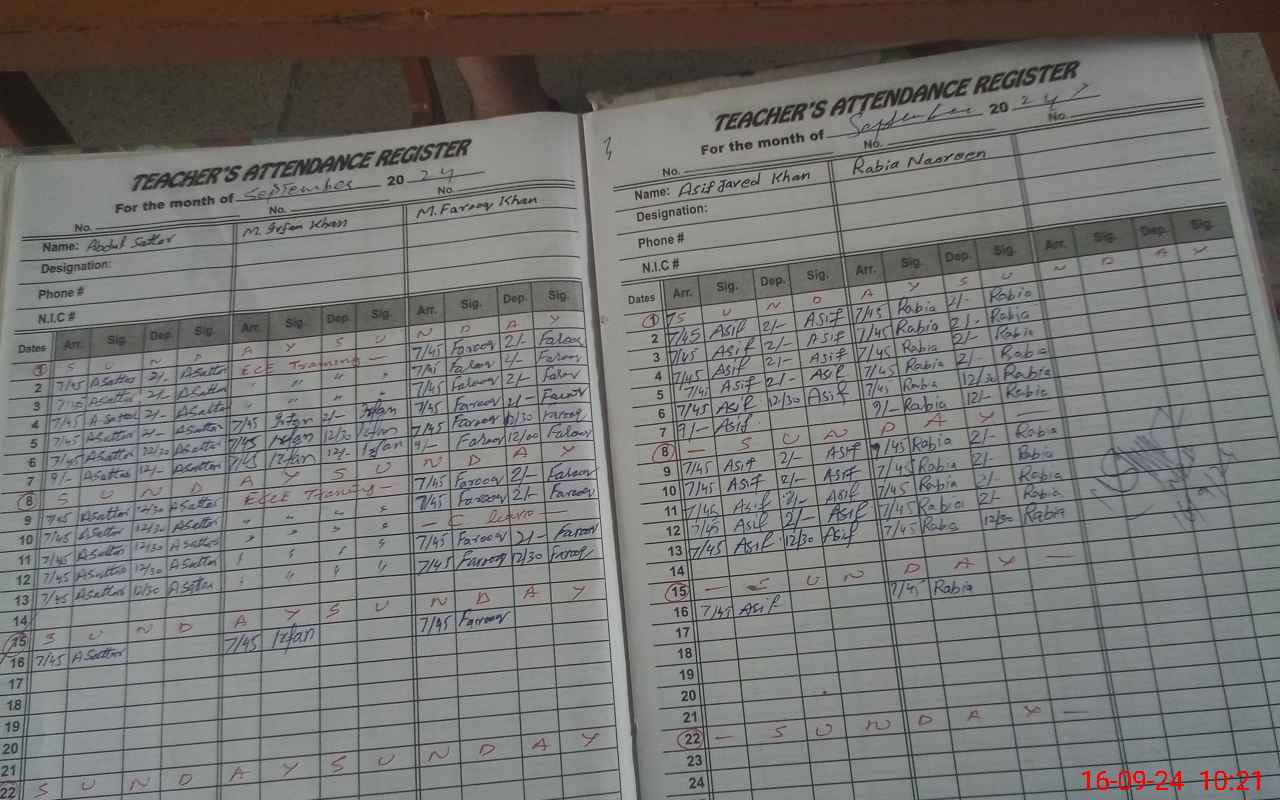 TEACHER'S ATTENDANCE REGISTER
For the month of September 20 24
No. No. No.
Name: Abdul Sattar M. Irfan Khan M. Farooq Khan
Designation:
Phone #
N.I.C #
Dates Arr. Sig. Dep. Sig. Arr. Sig. Dep. Sig. Arr. Sig. Dep. Sig.
1 S U N D A Y S U N D A Y
2 7/45 ASattar 2/- ASattar ECE Training — 7/45 Farooq 2/- Farooq
3 7/45 ASattar 2/- ASattar " " " " 7/45 Farooq 2/- Farooq
4 7/45 ASattar 2/- ASattar " " " " 7/45 Farooq 2/- Farooq
5 7/45 ASattar 2/- ASattar 7/45 Irfan 2/- Irfan 7/45 Farooq 2/- Farooq
6 7/45 ASattar 12/30 ASattar 7/45 Irfan 12/30 Irfan 7/45 Farooq 12/30 Farooq
7 9/- ASattar 12/- ASattar 7/45 Irfan 12/- Irfan 9/- Farooq 12/00 Farooq
8 S U N D A Y S U N D A Y
9 7/45 ASattar 12/30 ASattar ECE Training — 7/45 Farooq 2/- Farooq
10 7/45 ASattar 12/30 ASattar " " " " 7/45 Farooq 2/- Farooq
11 7/45 ASattar 12/30 ASattar " " " " — C leave —
12 7/45 ASattar 12/30 ASattar " " " " 7/45 Farooq 2/- Farooq
13 7/45 ASattar 12/30 ASattar " " " " 7/45 Farooq 12/30 Farooq
14
15 S U N D A Y S U N D A Y
16 7/45 ASattar 7/45 Irfan 7/45 Farooq
17
18
19
20
21
22 S U N D A Y S U N D A Y
TEACHER'S ATTENDANCE REGISTER
For the month of September 20 24
No. No. No.
Name: Asif Javed Khan Rabia Nasreen
Designation:
Phone #
N.I.C #
Dates Arr. Sig. Dep. Sig. Arr. Sig. Dep. Sig. Arr. Sig. Dep. Sig.
1 S U N D A Y S U N D A Y
2 7/45 Asif 2/- Asif 7/45 Rabia 2/- Rabia
3 7/45 Asif 2/- Asif 7/45 Rabia 2/- Rabia
4 7/45 Asif 2/- Asif 7/45 Rabia 2/- Rabia
5 7/45 Asif 2/- Asif 7/45 Rabia 2/- Rabia
6 7/45 Asif 12/30 Asif 7/45 Rabia 12/30 Rabia
7 9/- Asif 9/- Rabia 12/- Rabia
8 — S U N D A Y —
9 7/45 Asif 2/- Asif 7/45 Rabia 2/- Rabia
10 7/45 Asif 2/- Asif 7/45 Rabia 2/- Rabia
11 7/45 Asif 2/- Asif 7/45 Rabia 2/- Rabia
12 7/45 Asif 2/- Asif 7/45 Rabia 2/- Rabia
13 7/45 Asif 12/30 Asif 7/45 Rabia 12/30 Rabia
14
15 — S U N D A Y —
16 7/45 Asif 7/45 Rabia
17
18
19
20
21
22 — S U N D A Y —
23
24
16-09-24 10:21